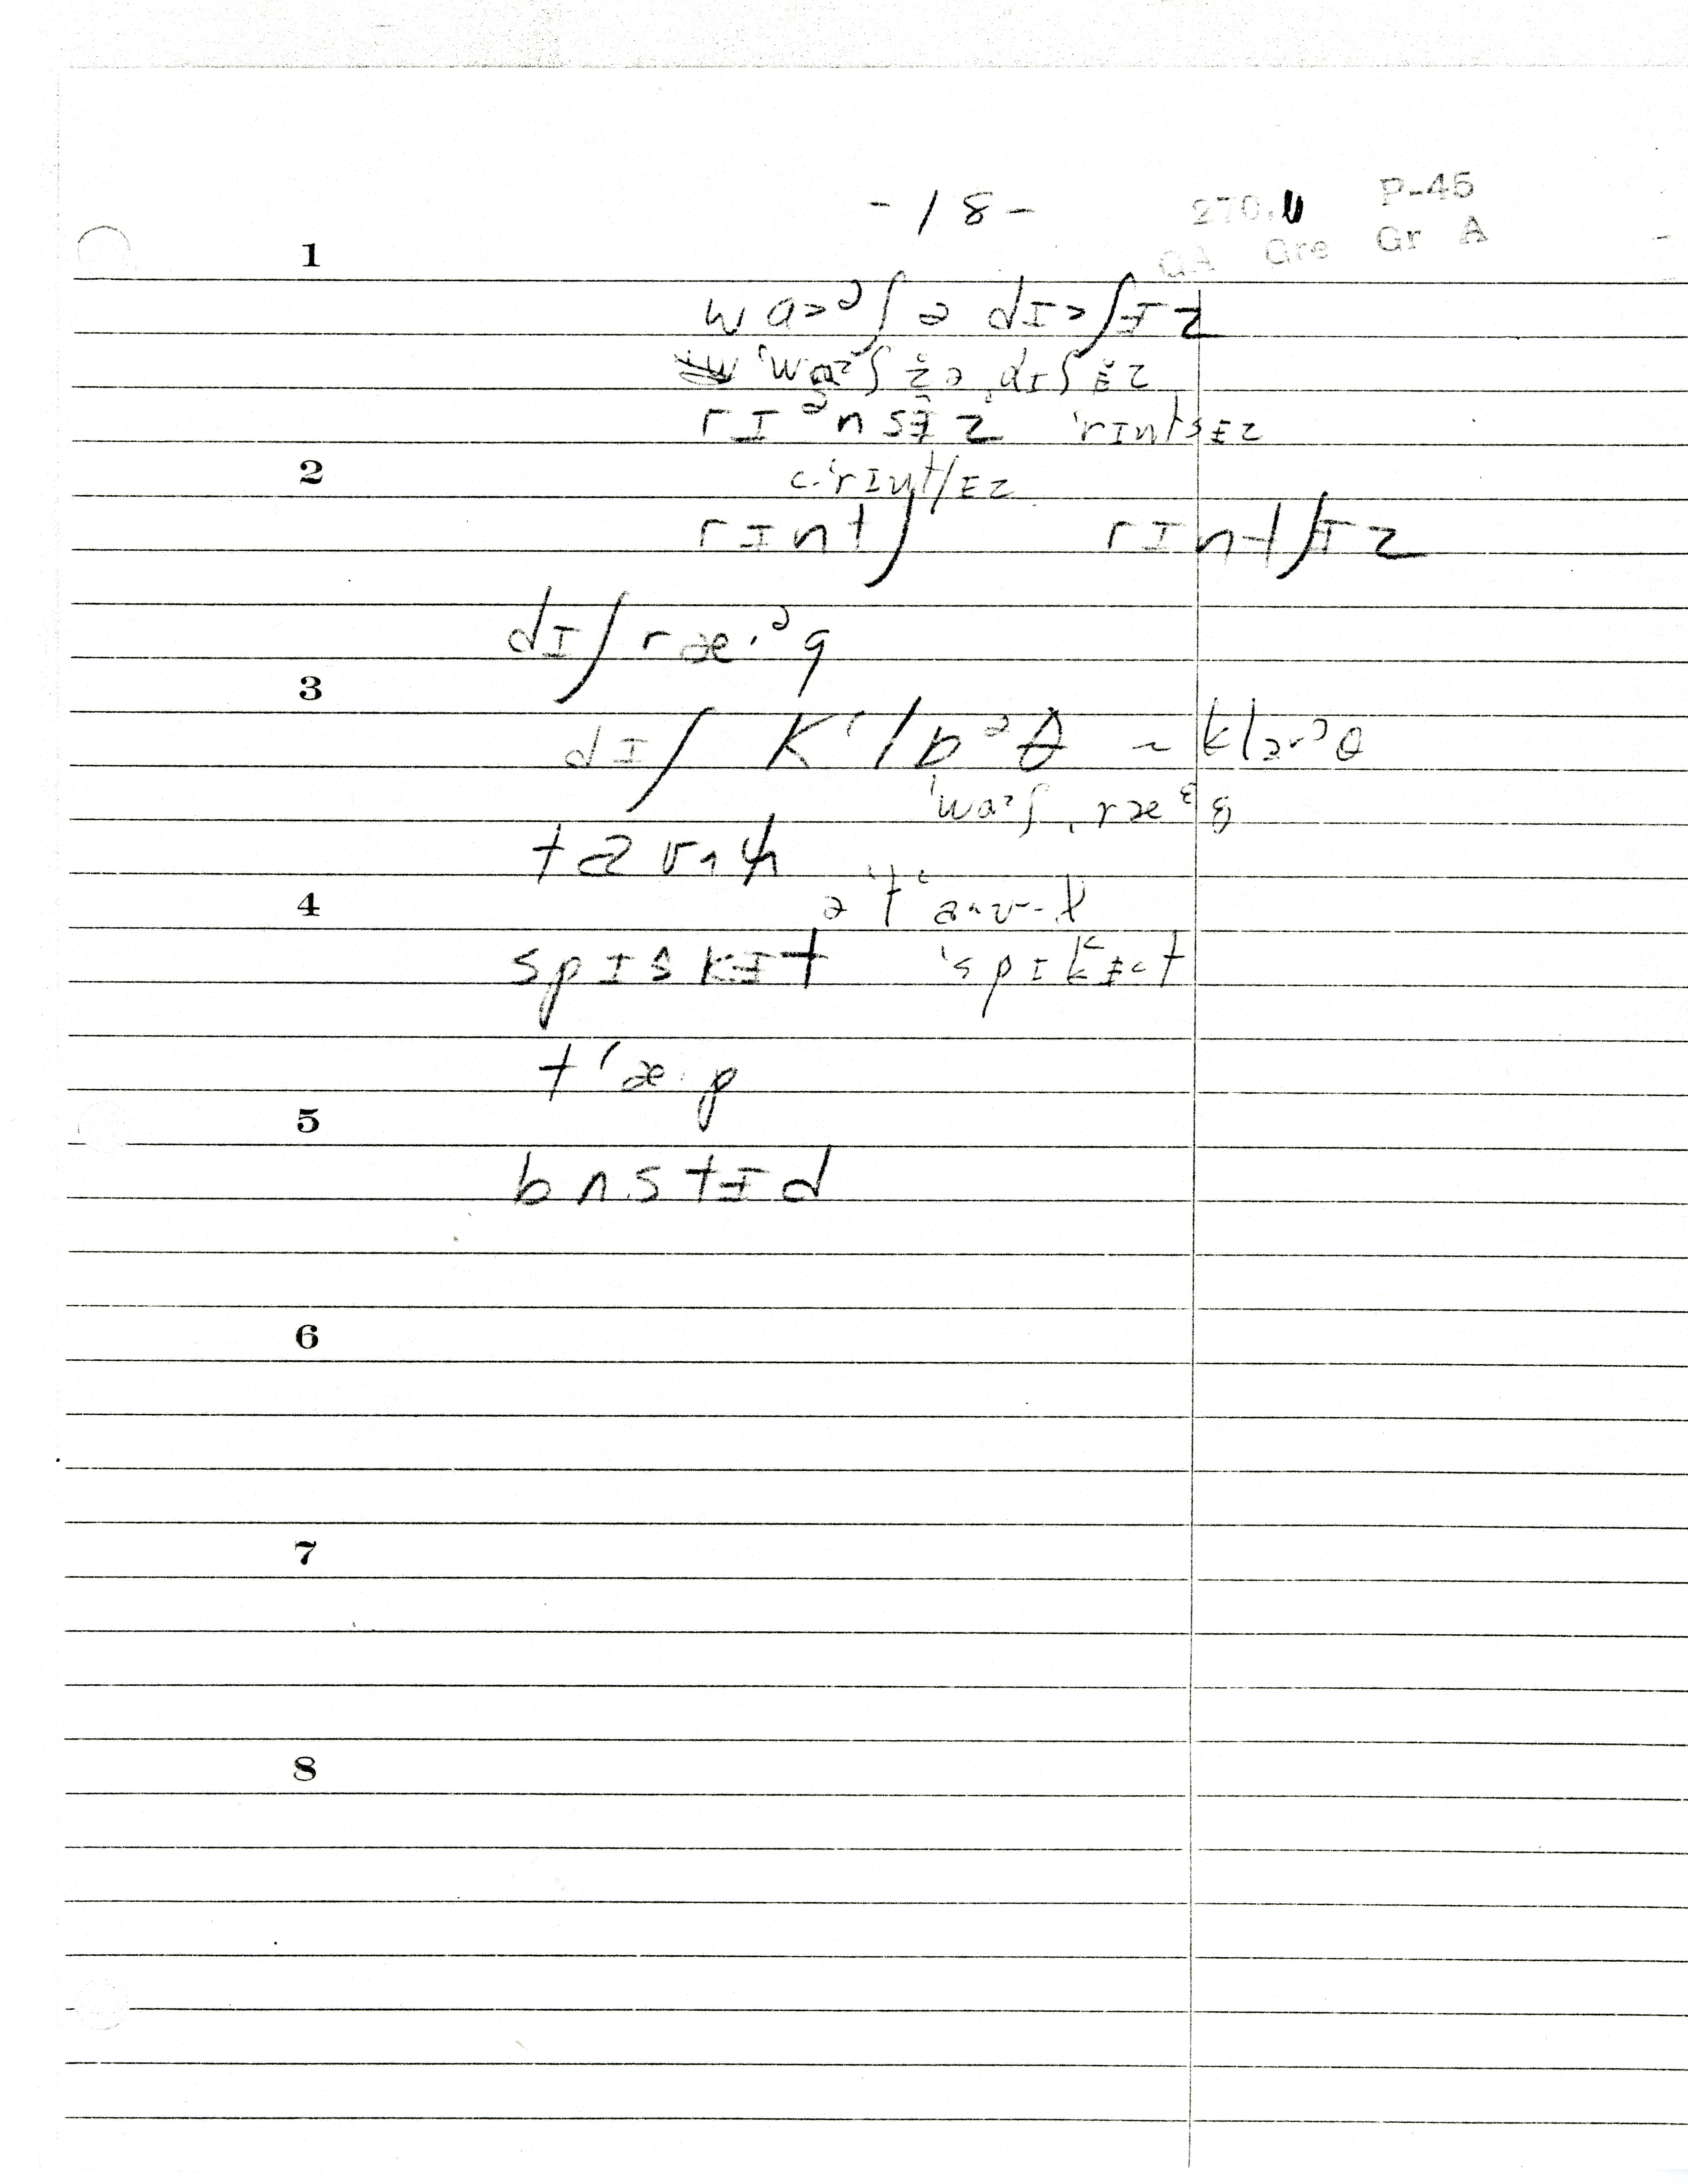 - 18 - 270.U P-45
GA Gre Gr A
1
wa>ᵊʃ ə dɪ>ʃɨz
ˈwɑᵊʃ ə dɪʃɨz
rɪᵊnsɨz ˈrɪntsɨz
2
c. ˈrɪntʃɨz
rɪntʃ rɪntʃɨz
dɪʃ ræ·ᵊg
3
dɪʃ K'lɒᵊθ ~ klɔ·ᵊθ
ˈwɑᵊʃ ˌræᵋg
4
spɪskɨt ˈspɪkɨt
t'æ·p
5
bʌstɨd
6
7
8